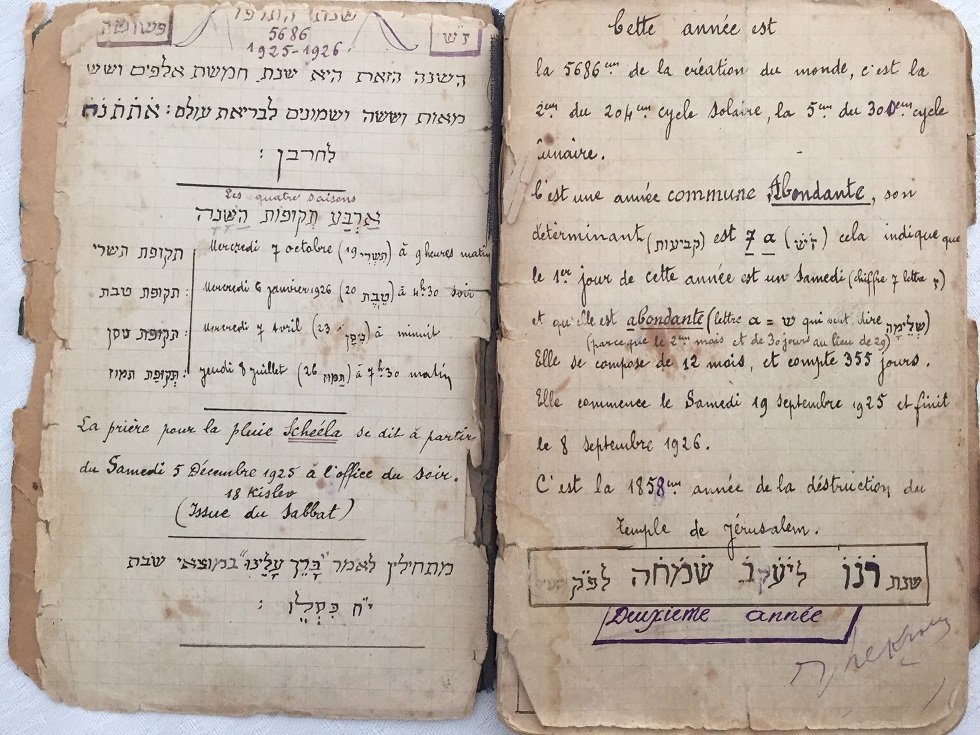 פשוטה
שנת התרפו
זש
5686
1925-1926
השנה הזאת היא שנת חמשת אלפים ושש
מאות וששה ושמונים לבריאת עולם:
לחרבן :
Les quatre saisons
אַרְבַּע תְקופות הַשָּׁנָה
תקופת תשרי Mercredi 7 octobre (19 תשרי) à 9 heures matin
תקופת טבת : Mercredi 6 janvier 1926 (20 טֵבֵת) à 4h30 soir
תקופת ניסן : Mercredi 7 Avril (23 נִיסָן) à minuit
תְּקוּפַת תמוז : jeudi 8 juillet (26 תַמוז) à 7h30 matin
La prière pour la pluie Scheèla se dit à partir
du Samedi 5 Décembre 1925 à l'office du soir.
18 Kislev
(Issue du Sabbat)
מתחילין לאמר "בָּרֵךְ עָלֵינוּ" במוצאי שבת
י"ח כִּסְלֵו :
Cette année est
la 5686em de la création du monde, c'est la
2em du 204em cycle solaire, la 5em du 300em cycle
lunaire.
C'est une année commune Abondante, son
déterminant (קביעות) est 7 a (זש) cela indique que
le 1er jour de cette année est un Samedi (chiffre 7 lettre ז)
et qu'elle est abondante (lettre a = ש qui veut dire שְׁלֵימָה)
(parce que le 2em mois et de 30 jours au lieu de 29)
Elle se compose de 12 mois, et compte 355 jours.
Elle commence le Samedi 19 septembre 1925 et finit
le 8 septembre 1926.
C'est la 1858em année de la déstruction du
Temple de Jérusalem.
שנת רנו ליעקב שמחה לפ"ק
Deuxième année